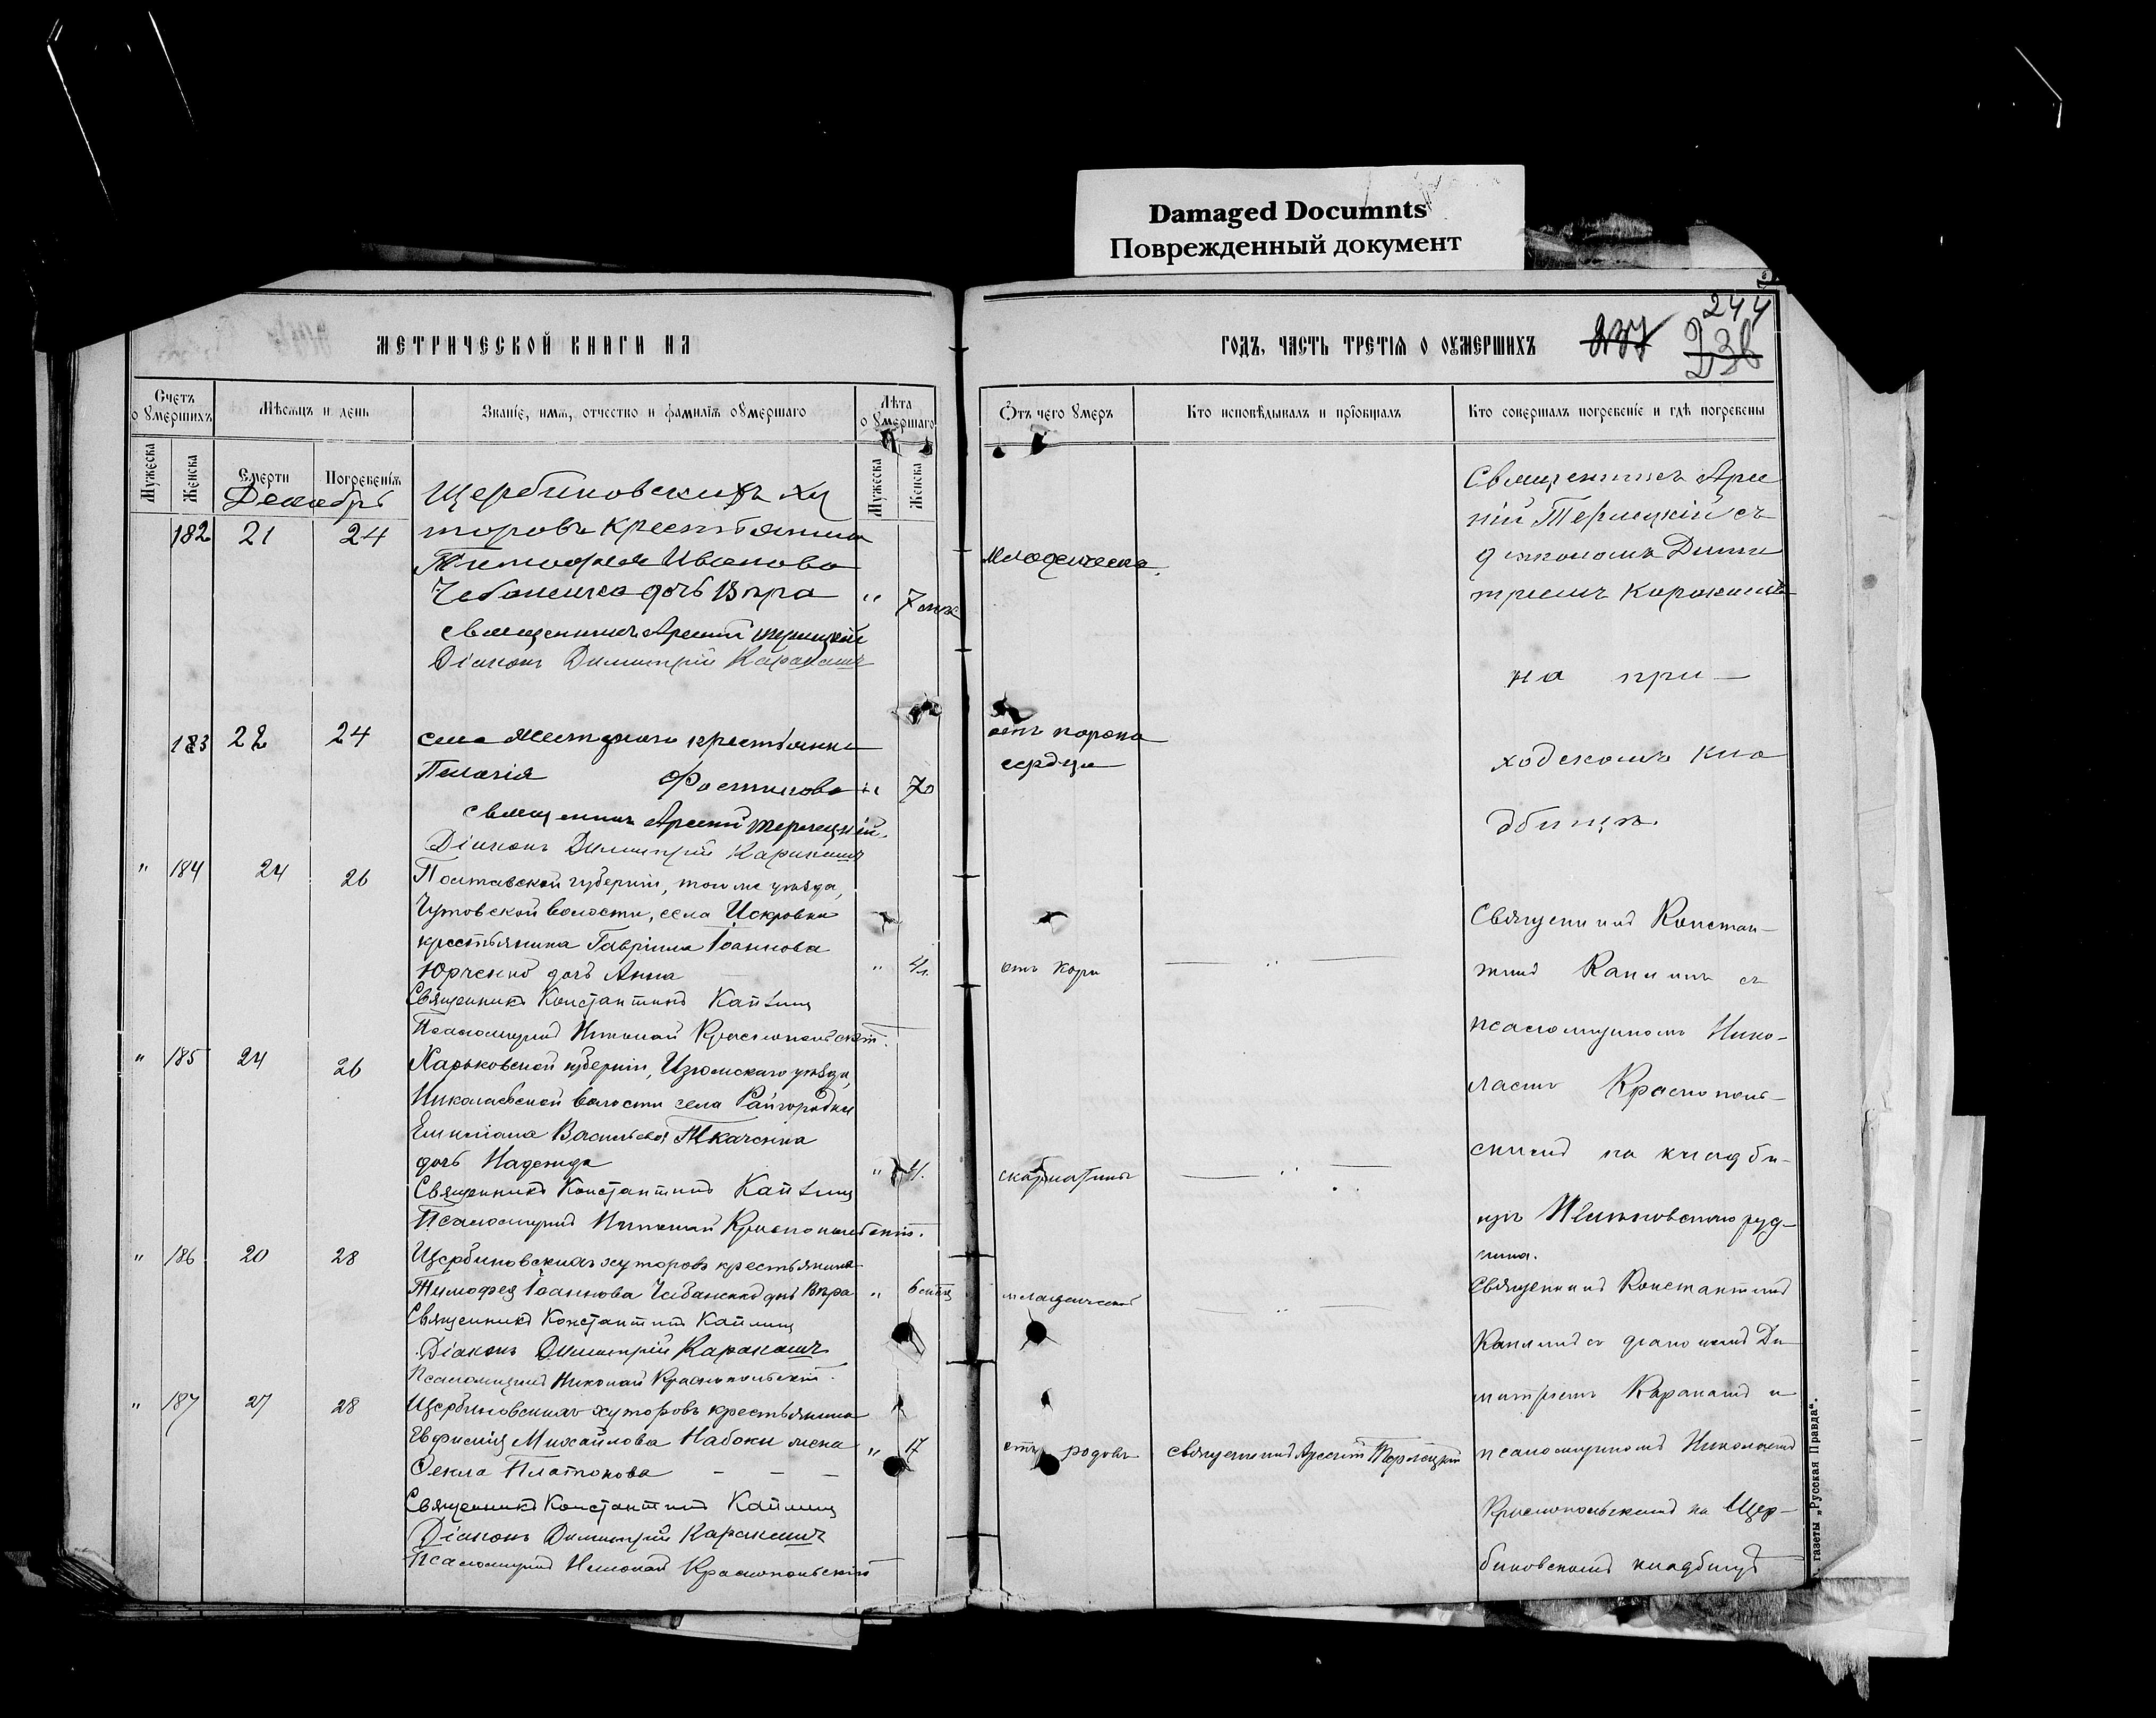 Damaged Documnts
Поврежденный документ
МЕТРИЧЕСКОЙ КНИГИ НА
ГОДЪ, ЧАСТЬ ТРЕТІЯ О ОУМЕРШИХЪ
237
244
238
Счетъ о Умершихъ
Мѣсяцъ и день
Званіе, имя, отчество и фамилія оумершаго
Лѣта оумершаго
Отъ чего Умеръ
Кто исповѣдывалъ и пріобщалъ
Кто совершалъ погребеніе и гдѣ погребены
Мужеска
Женска
Смерти
Погребенія
Мужеска
Женска
Декабрь
182 21 24
Щербиновскихъ ху
торовъ крестьянина
Тимофея Иванова
Чебаненка дочь Вѣра " 7 мѣс
Священникъ Арсеній Терлецкій
Діаконъ Димитрій Каракашъ
Младенческа.
Священникъ Арсе
ній Терлецкій съ
діакономъ Дими
тріемъ Каракашемъ
на при—
ходскомъ кла
дбищѣ.
183 22 24
села крестьянка
Пелагія " 70
Священникъ Арсеній Терлецкій.
Діаконъ Димитрій Каракашъ
отъ порока
сердца
" 184 24 26
Полтавской губерніи, того же уѣзда,
Чутовской волости, села Искровки
крестьянина Гавріила Іоаннова
Юрченко дочь Анна " 4 г.
Священникъ Константинъ
Псаломщикъ Николай Краснопольскій.
отъ кори
Священникъ Констан—
тинъ съ
псаломщикомъ Нико—
лаемъ Краснополь—
скимъ на кладби—
щѣ руд—
ника.
" 185 24 26
Харьковской губерніи, Изюмскаго уѣзда,
Николаевской волости села Райгородка
Емиліана Васильева Ткаченка
дочь Надежда " 4 г.
Священникъ Константинъ
Псаломщикъ Николай Краснопольскій.
скарлатины
" 186 20 28
Щербиновскихъ хуторовъ крестьянина
Тимофея Іоаннова Чебаненко дочь Вѣра " 6 мѣсяц
Священникъ Константинъ
Діаконъ Димитрій Каракашъ
Псаломщикъ Николай Краснопольскій.
младенческой
Священникъ Константинъ
съ діакономъ Ди—
митріемъ Каракашъ и
псаломщикомъ Николаемъ
Краснопольскимъ на Щер—
биновскомъ кладбищѣ
" 187 27 28
Щербиновскихъ хуторовъ крестьянина
Евфимія Михайлова Набоки жена " 17
Ѳекла Платонова — — —
Священникъ Константинъ
Діаконъ Димитрій Каракашъ
Псаломщикъ Николай Краснопольскій
отъ родовъ
священникъ Арсеній Терлецкій
газеты „Русская Правда“.